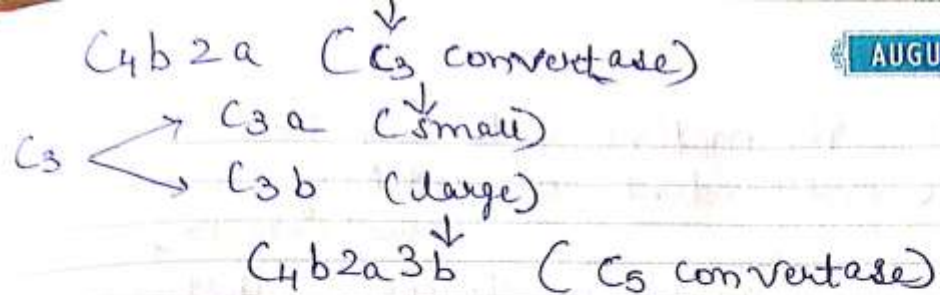 C4b2a (C3 convertase)
AUGU
C3a (small)
C3
C3b (large)
C4b2a3b (C5 convertase)